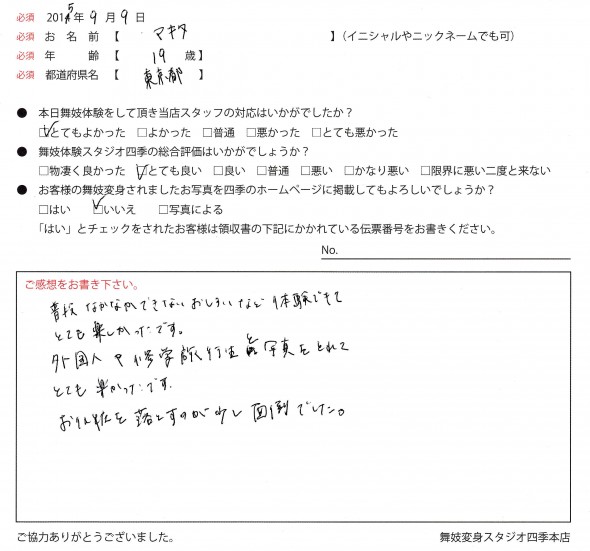 必須 2015年 9月 9日
必須 お名前【 マキタ 】(イニシャルやニックネームでも可)
必須 年齢【 19 歳】
必須 都道府県名【 東京都 】
● 本日舞妓体験をして頂き当店スタッフの対応はいかがでしたか?
☑とてもよかった □よかった □普通 □悪かった □とても悪かった
● 舞妓体験スタジオ四季の総合評価はいかがでしょうか?
□物凄く良かった ☑とても良い □良い □普通 □悪い □かなり悪い □限界に悪い二度と来ない
● お客様の舞妓変身されましたお写真を四季のホームページに掲載してもよろしいでしょうか?
□はい ☑いいえ □写真による
「はい」とチェックをされたお客様は領収書の下記にかかれている伝票番号をお書きください。
No.
ご感想をお書き下さい。
普段なかなかできないおしろいなど体験できて
とても楽しかったです。
外国人や修学旅行生と写真をとれて
とても楽かったです.
お化粧を落とすのが少し面倒でした。
ご協力ありがとうございました。
舞妓変身スタジオ四季本店